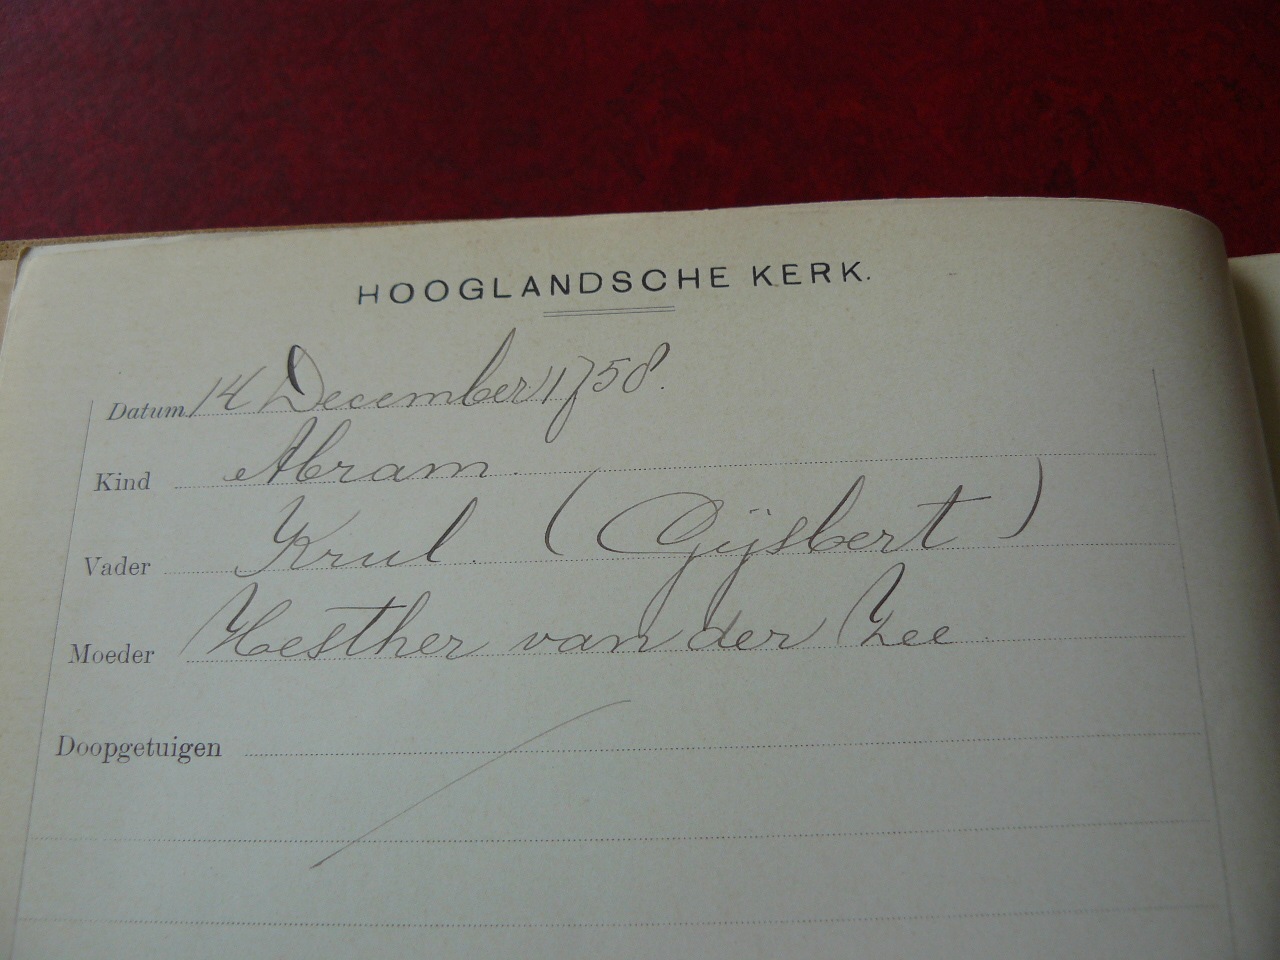 HOOGLANDSCHE KERK.
Datum 14 December 1758.
Kind Abram.
Vader Krul. (Gijsbert)
Moeder Hesther van der Zee.
Doopgetuigen